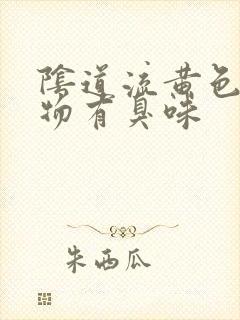 陰道流黃色
物有臭味
朱西瓜